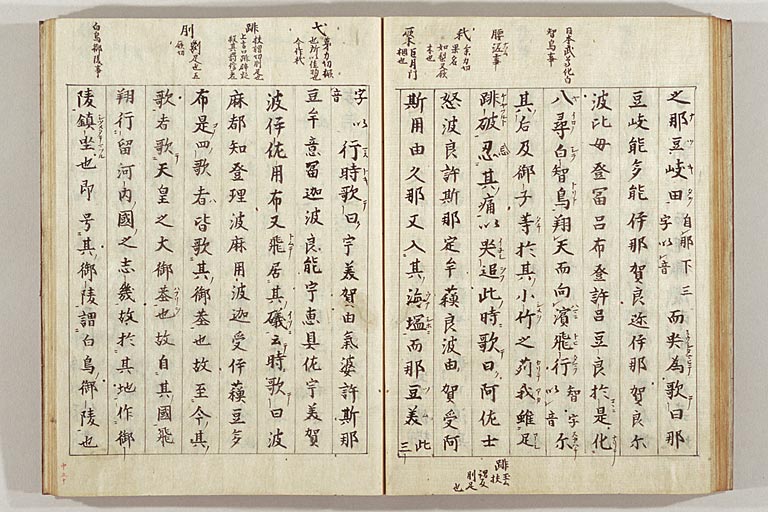 日本武尊化白
智鳥事
之那豆岐田 自那下三字以音 而哭為歌曰那
豆岐能多能伊那賀良迩伊那賀良尓
波比母登冨呂布登許呂豆良於是化
八尋白智鳥翔天而向濱飛行 智字以音 尓
其后及御子等於其小竹之苅我雖足
破忍其痛以哭追此時歌曰阿佐士
怒波良許斯那定牟蘓良波由賀受阿
斯用由久那又入其海塩而那豆美 此三
字以音 行時歌曰宇美賀由氣婆許斯那
豆牟意冨迦波良能宇恵具佐宇美賀
波伊佐用布又飛居其礒之時歌曰波
麻都知登理波麻用波迦受伊蘓豆多
布是四歌者皆歌其御葬也故至今其
歌者歌天皇之大御葬也故自其國飛
翔行留河内國之志幾故於其地作御
陵鎮坐也即号其御陵謂白鳥御陵也
刖
白鳥御陵事